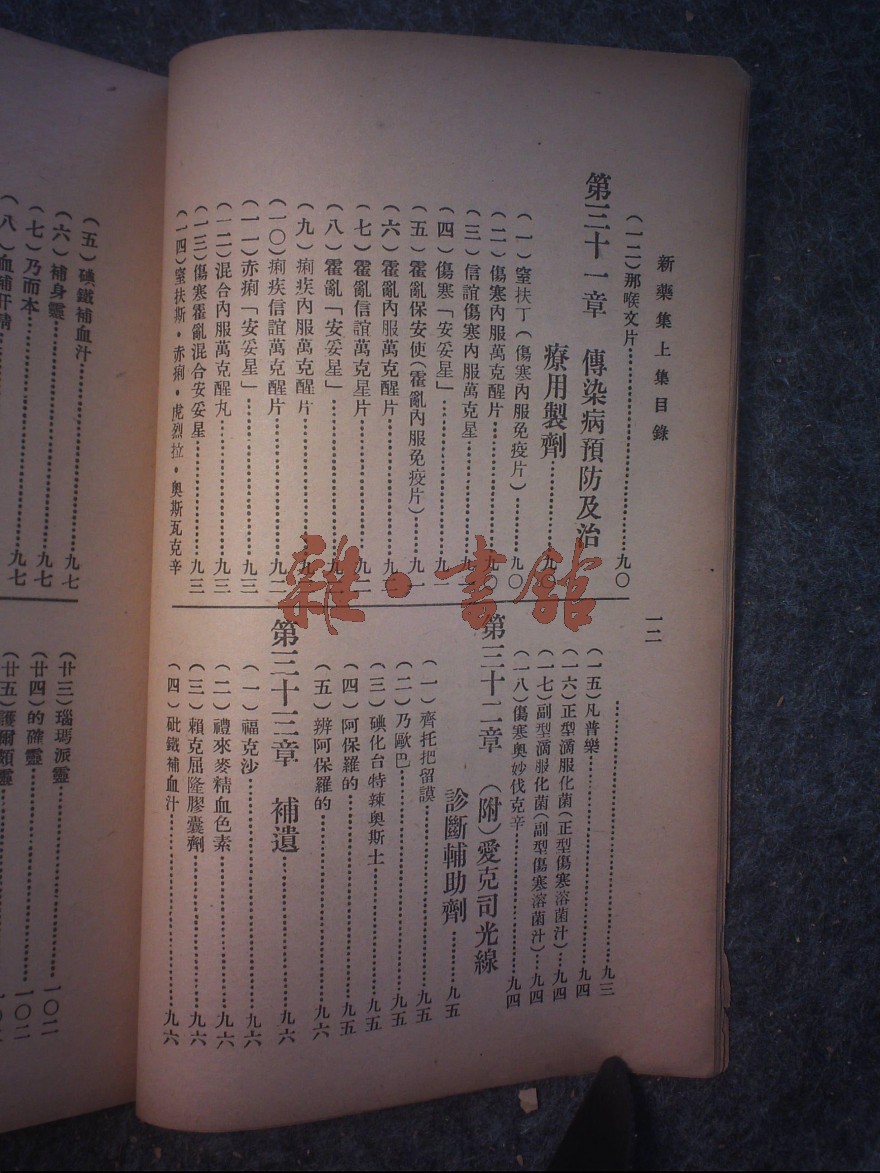 新藥集上集目錄
一二
（一二）那喉文片……九〇
第三十一章 傳染病預防及治
療用製劑……九〇
（一）窒扶丁（傷寒內服免疫片）……九〇
（二）傷寒內服萬克醒片……九〇
（三）信誼傷寒內服萬克星……九一
（四）傷寒「安妥星」……九一
（五）霍亂保安使（霍亂內服免疫片）……九一
（六）霍亂內服萬克醒片……九一
（七）霍亂信誼萬克星片……九二
（八）霍亂「安妥星」……
（九）痢疾內服萬克醒片……
（一〇）痢疾信誼萬克醒片……九二
（一一）赤痢「安妥星」……九三
（一二）混合內服萬克醒丸……九三
（一三）傷寒霍亂混合安妥星……九三
（一四）窒扶斯・赤痢・虎烈拉・奧斯瓦克辛
……九三
（一五）凡普樂……九四
（一六）正型滴服化菌（正型傷寒溶菌汁）…九四
（一七）副型滴服化菌（副型傷寒溶菌汁）…九四
（一八）傷寒奧妙伐克辛……九四
第三十二章 （附）愛克司光線
診斷輔助劑……九五
（一）齊托把留謨……九五
（二）乃歐巴……九五
（三）碘化台特辣奧斯士……九五
（四）阿保羅的……九五
（五）辨阿保羅的……九六
第三十三章 補遺……九六
（一）福克沙……九六
（二）禮來麥精血色素……九六
（三）賴克屈隆膠囊劑……九六
（四）砒鐵補血汁……九六
（五）碘鐵補血汁……九七
（六）補身靈……九七
（七）乃而本……九七
（八）血補肝精
（廿三）瑙瑪派靈……一〇二
（廿四）的確靈……一〇二
（廿五）護爾賴靈
雜・書館